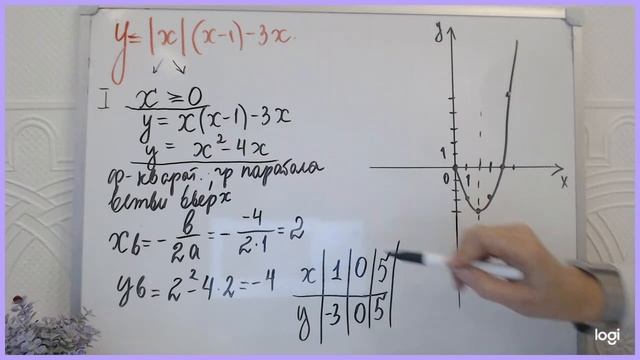 y = |x|(x-1)-3x.
I x ≥ 0
y = x(x-1)-3x
y = x²-4x
ф-квадрат., гр парабола
ветви вверх
xв = - в/2а = - -4/2·1 = 2
yв = 2²-4·2 = -4
x | 1 | 0 | 5
y | -3 | 0 | 5
y
1
0 1
x
logi